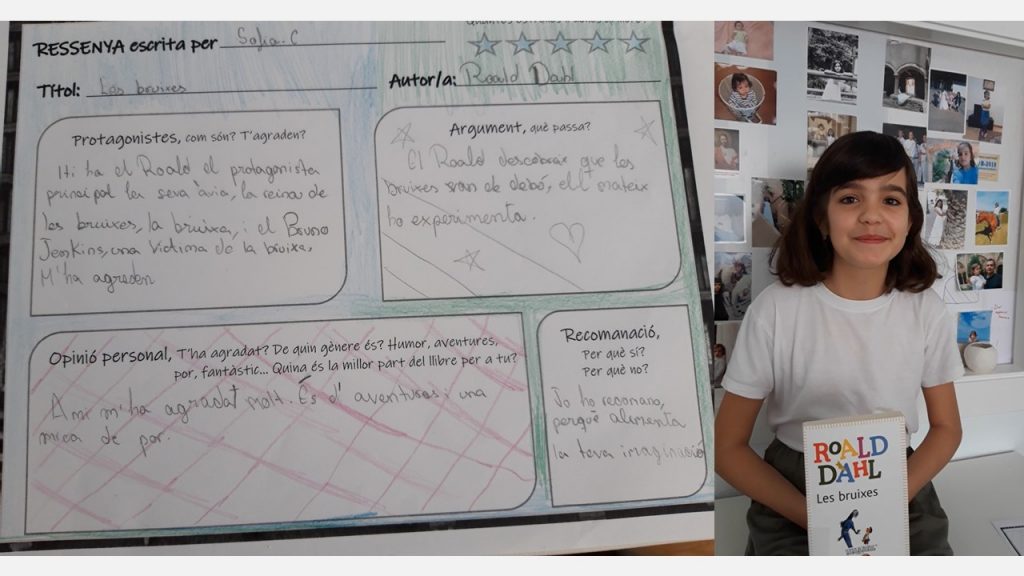 RESSENYA escrita per Sofia.C
Títol: Les bruixes
Autor/a: Roald Dahl
Protagonistes, com són? T'agraden?
Hi ha el Roald el protagonista
principal la seva àvia, la reina de
les bruixes, la bruixa, i el Bruno
Jenkins, una víctima de la bruixa.
M'ha agraden
Argument, què passa?
El Roald descobrax que les
bruixes son de debó, ell mateix
ho experimenta.
Opinió personal, T'ha agradat? De quin gènere és? Humor, aventures,
por, fantàstic... Quina és la millor part del llibre per a tu?
A mi m'ha agradat molt. És d'aventures i una
mica de por.
Recomanació,
Per què sí?
Per què no?
Jo ho recomano,
perquè alimenta
la teva imaginació
ROALD
DAHL
Les bruixes